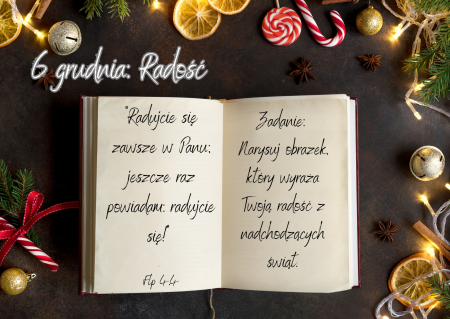 6 grudnia: Radość
"Radujcie się
zawsze w Panu;
jeszcze raz
powiadam: radujcie
się!"
Flp 4,4
Zadanie:
Narysuj obrazek,
który wyraża
Twoją radość z
nadchodzących
świąt.